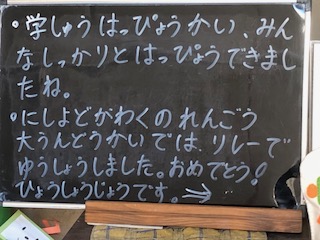 • 学しゅうはっぴょうかい、みん
なしっかりとはっぴょうできまし
たね。
• にしよどがわくのれんごう
大うんどうかいでは、リレーで
ゆうしょうしました。おめでとう!
ひょうしょうじょうです。→